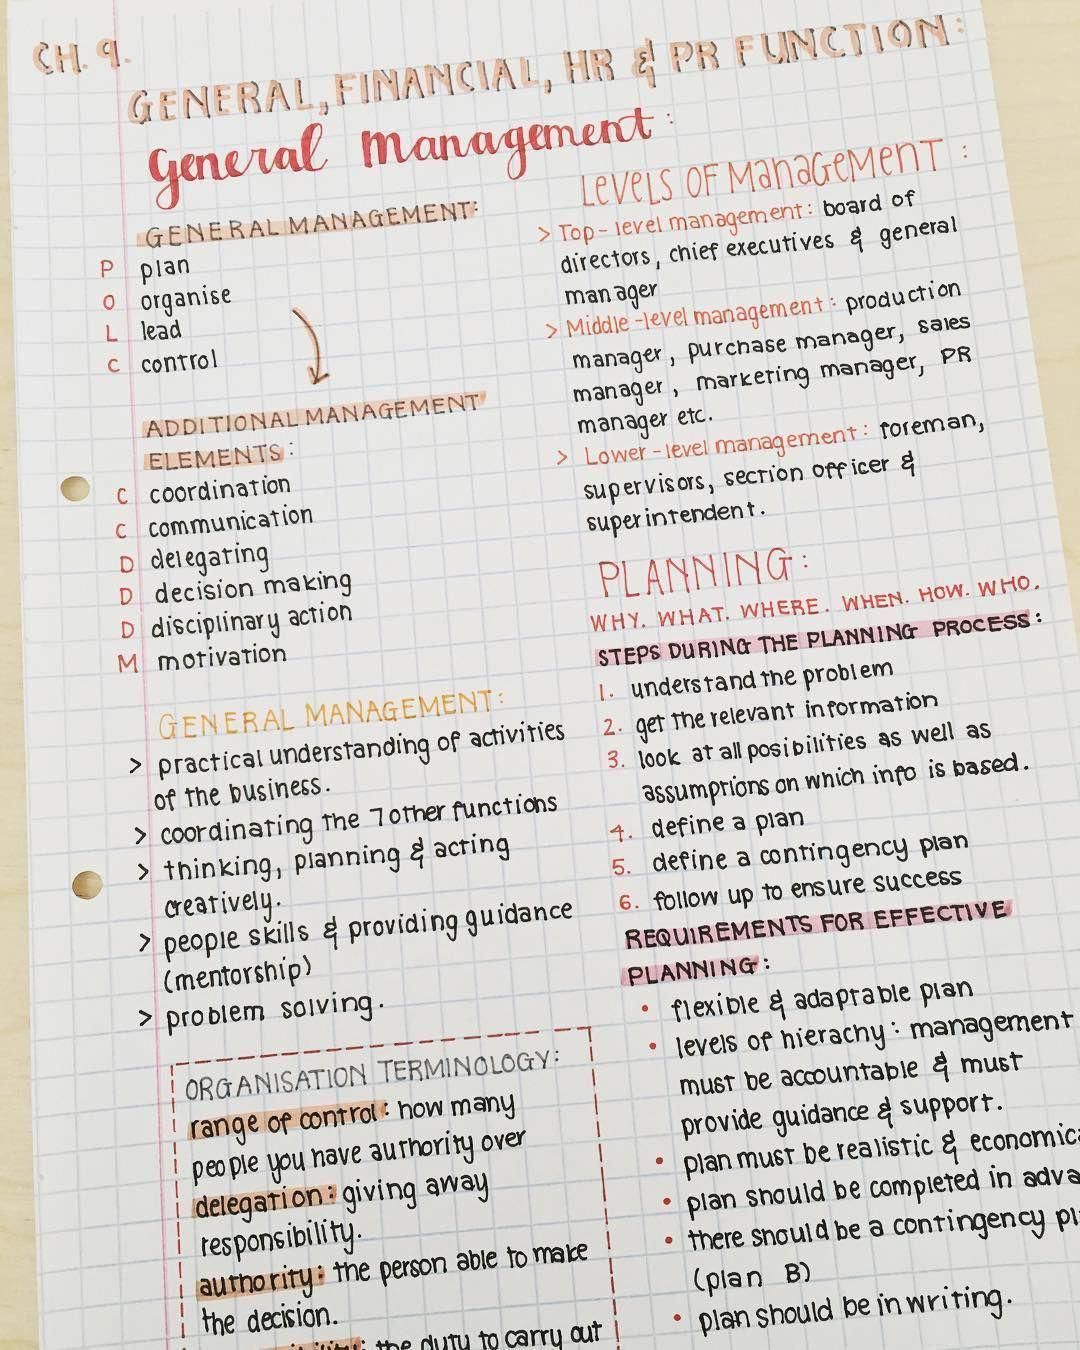 CH. 9.
GENERAL, FINANCIAL, HR & PR FUNCTION:
General Management:
GENERAL MANAGEMENT:
P plan
O organise
L lead
C control
ADDITIONAL MANAGEMENT
ELEMENTS:
C coordination
C communication
D delegating
D decision making
D disciplinary action
M motivation
GENERAL MANAGEMENT:
> practical understanding of activities
of the business.
> coordinating the 7 other functions
> thinking, planning & acting
creatively.
> people skills & providing guidance
(mentorship)
> problem solving.
ORGANISATION TERMINOLOGY:
range of control: how many
people you have authority over
delegation: giving away
responsibility.
authority: the person able to make
the decision.
the duty to carry out
LEVELS OF MANAGEMENT:
> Top-level management: board of
directors, chief executives & general
manager
> Middle-level management: production
manager, purchase manager, sales
manager, marketing manager, PR
manager etc.
> Lower-level management: foreman,
supervisors, section officer &
superintendent.
PLANNING:
WHY. WHAT. WHERE. WHEN. HOW. WHO.
STEPS DURING THE PLANNING PROCESS:
1. understand the problem
2. get the relevant information
3. look at all posibilities as well as
assumptions on which info is based.
4. define a plan
5. define a contingency plan
6. follow up to ensure success
REQUIREMENTS FOR EFFECTIVE
PLANNING:
• flexible & adaptable plan
• levels of hierachy: management
must be accountable & must
provide guidance & support.
• plan must be realistic & economica
• plan should be completed in adva
• there should be a contingency pl
(plan B)
• plan should be in writing.